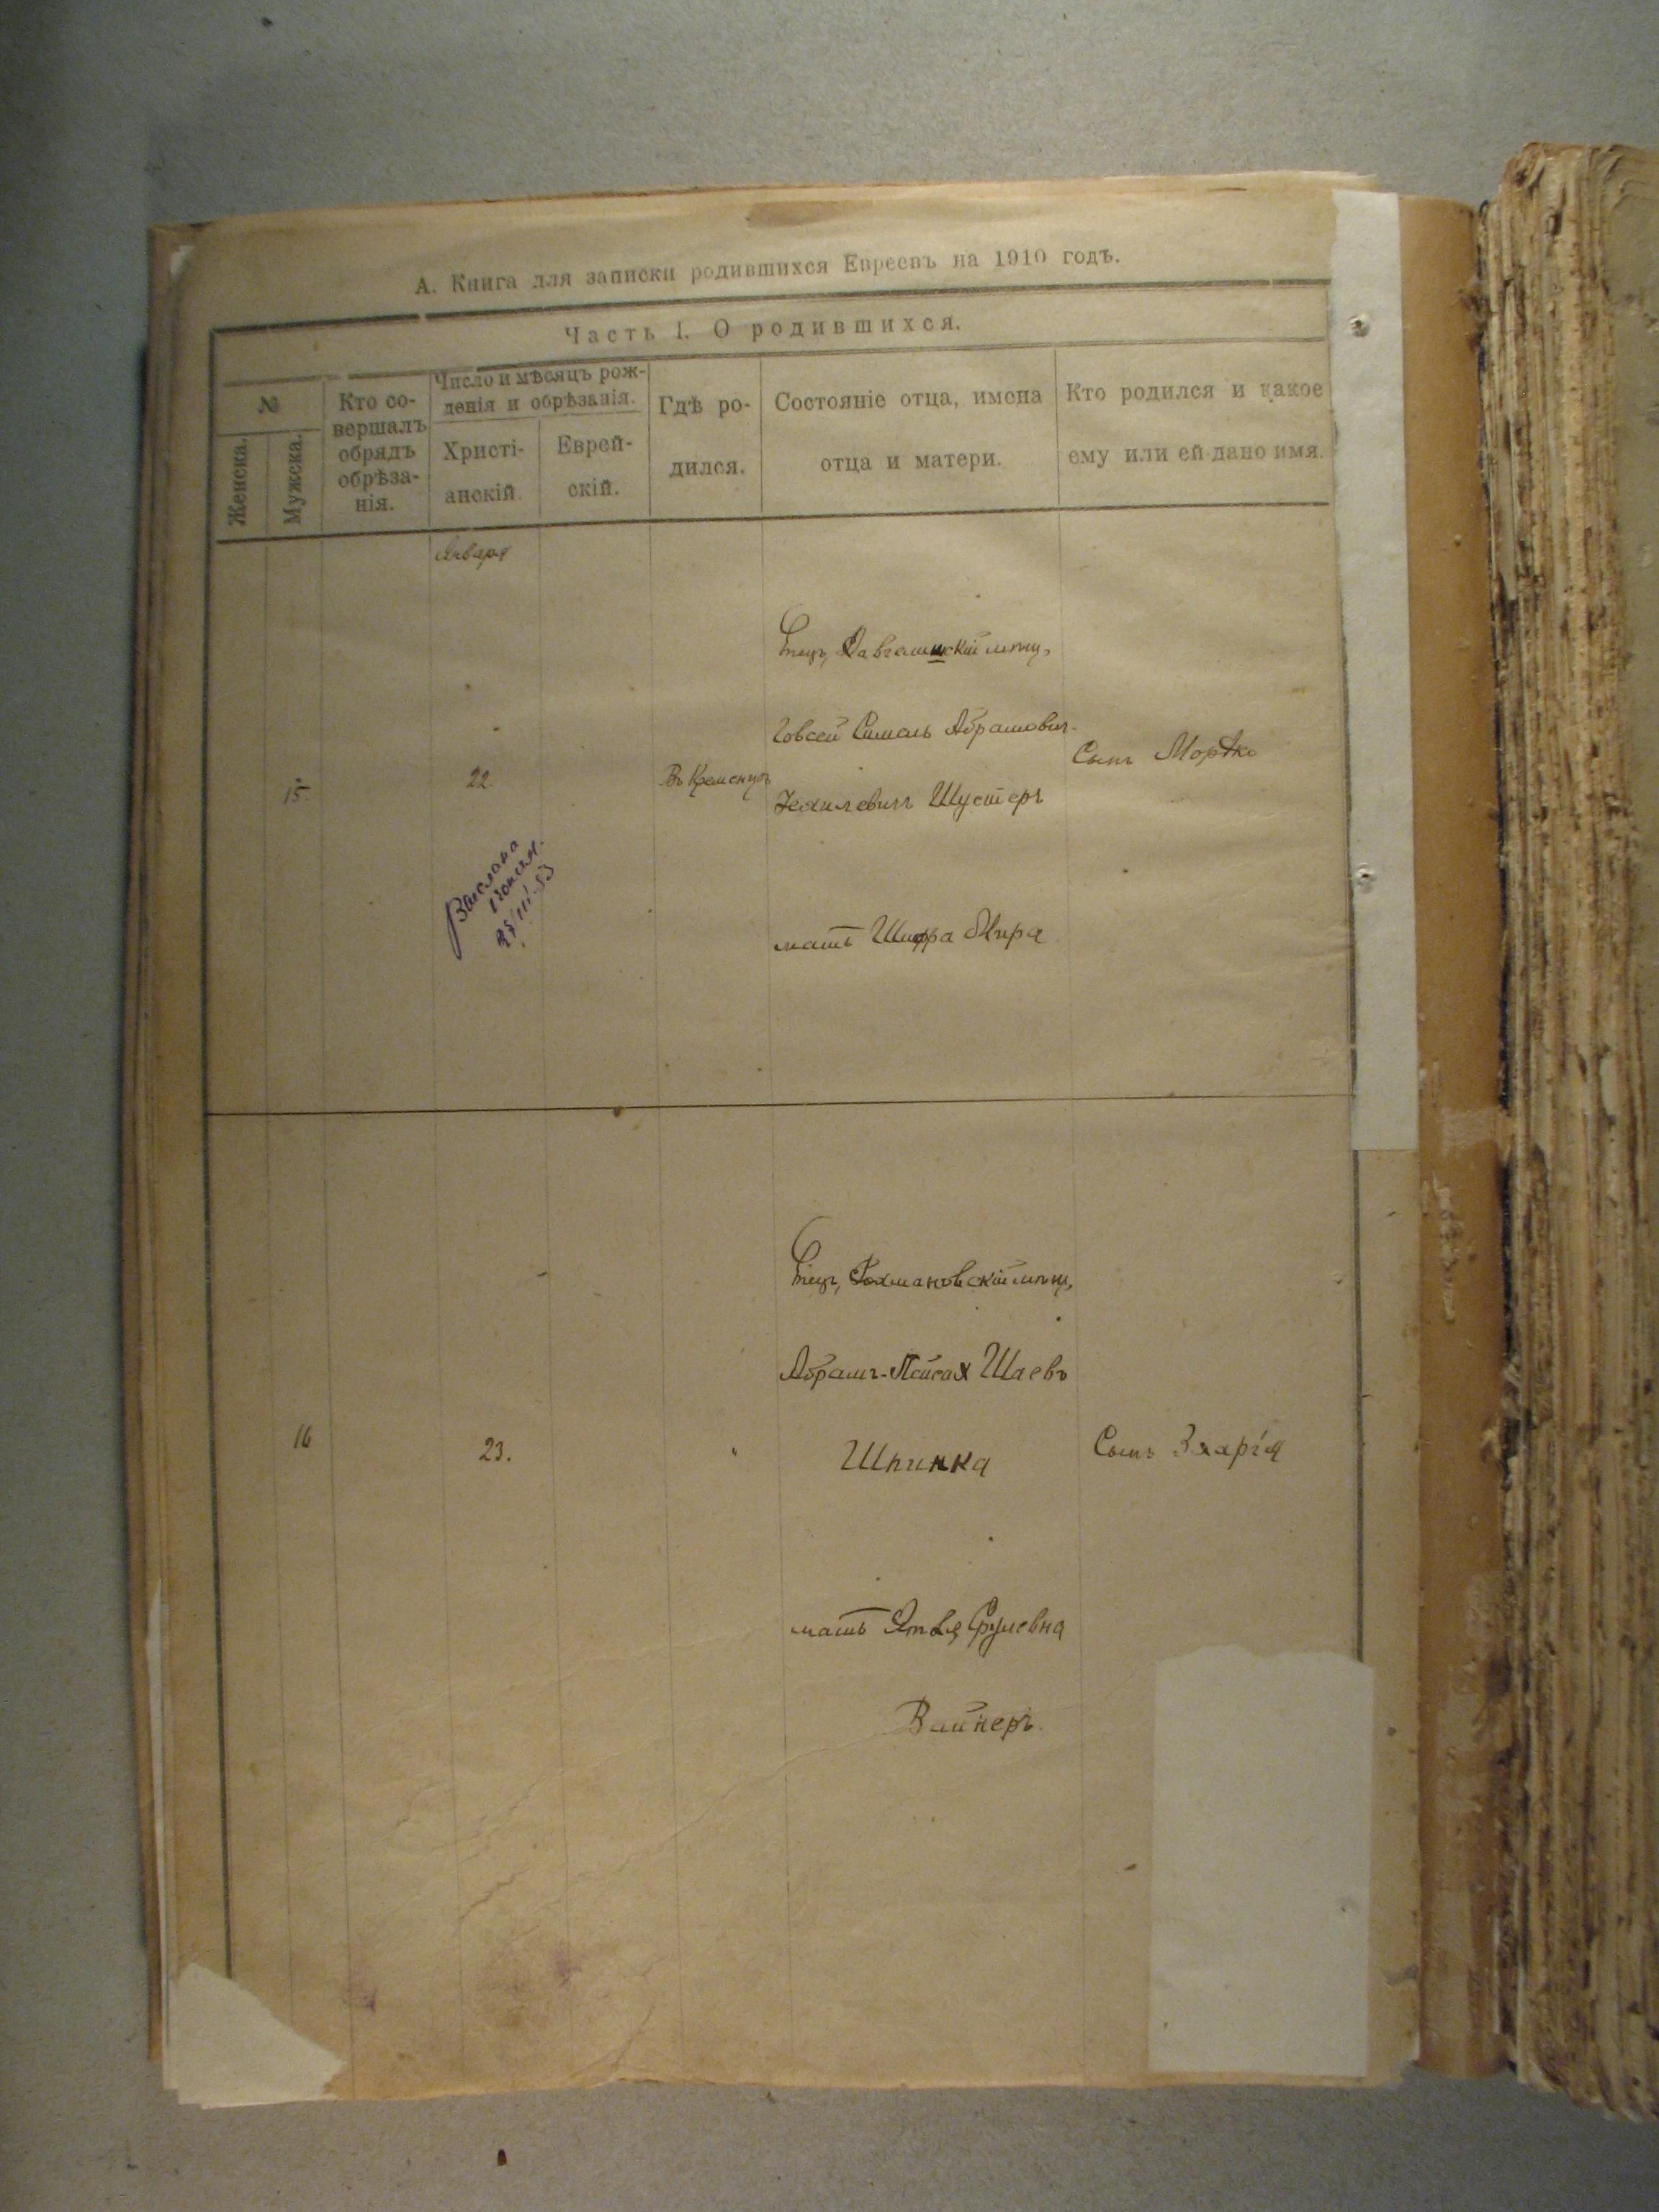 А. Книга для записки родившихся Евреевъ на 1910 годъ.
Часть I. О родившихся.
№
Женска.
Мужска.
Кто со-
вершалъ
обрядъ
обрѣза-
нія.
Число и мѣсяцъ рож-
денія и обрѣзанія.
Христі-
анскій.
Еврей-
скій.
Гдѣ ро-
дился.
Состояніе отца, имена
отца и матери.
Кто родился и какое
ему или ей дано имя.
Января
15.
22.
Въ Кременцѣ
Отецъ, мѣщ.
Іовсей Симель Абрамович-
Іехилевичъ Шустеръ
мать Шифра Мира
Сынъ Мордко
Выслана
25/III-53
16
23.
"
Отецъ, Рахмановскій мѣщ.
Абрамъ-Пейсах Шаевъ
Шпинка
мать Срулевна
Вайнеръ.
Сынъ Зхарія